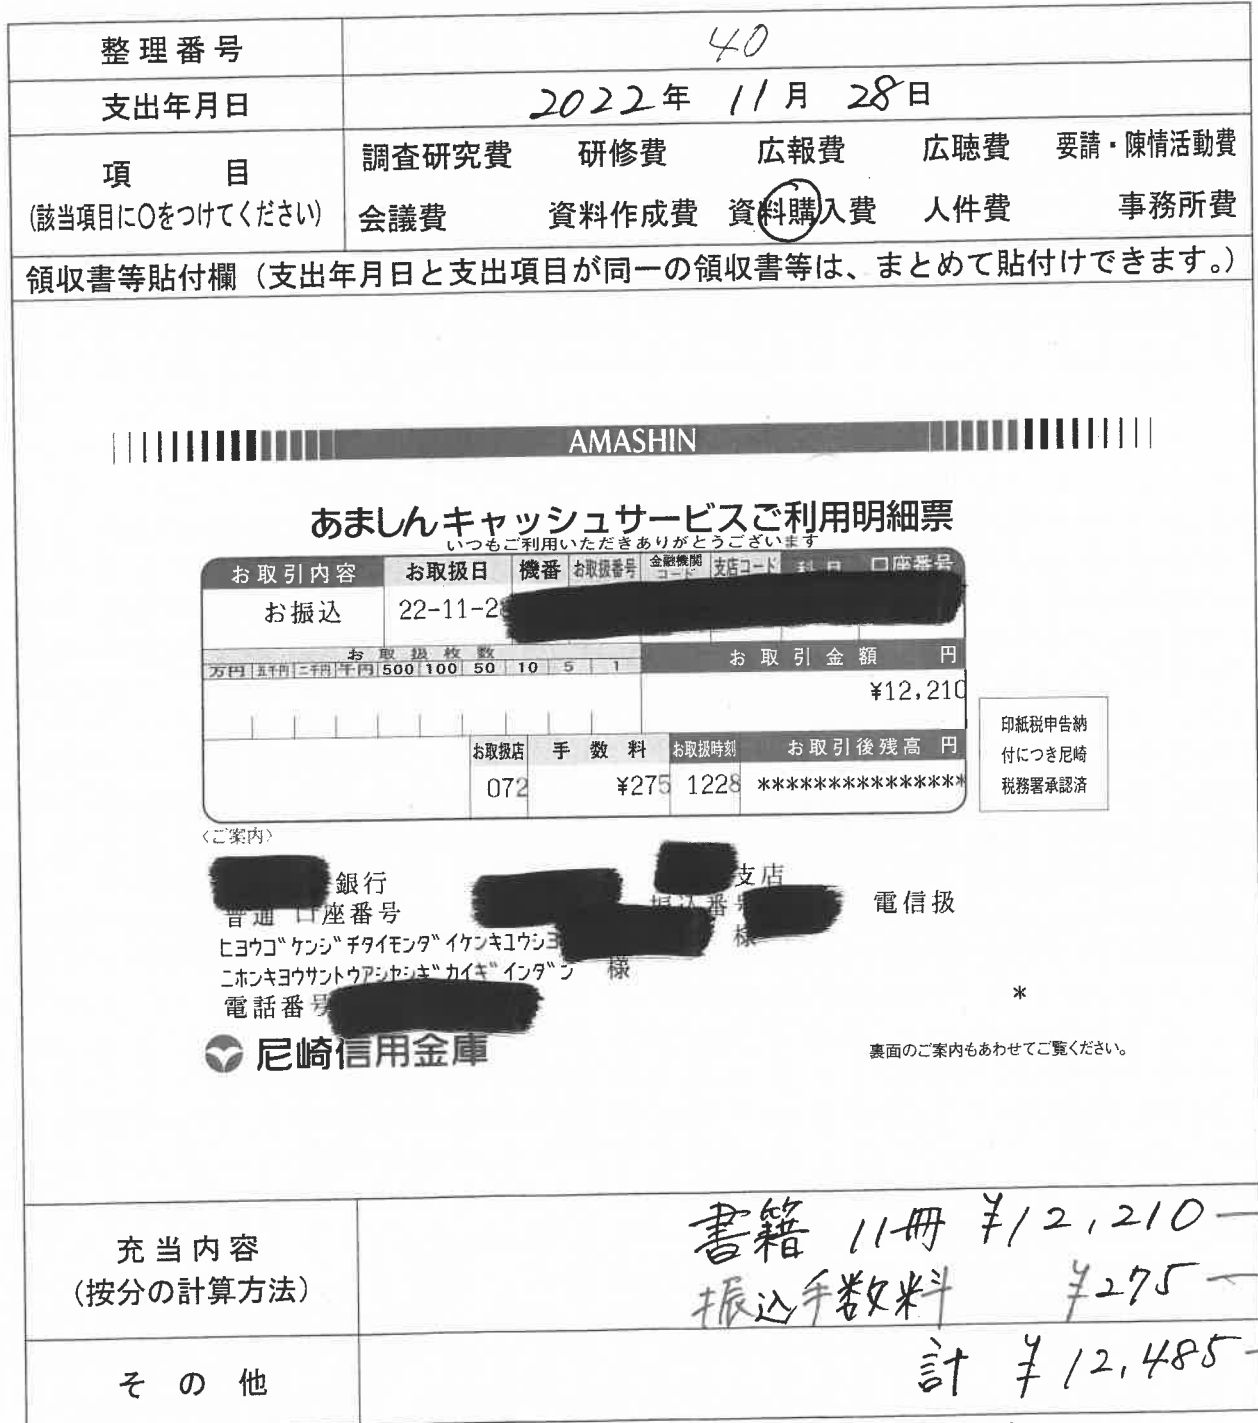 整理番号 40
支出年月日 2022年 11月 28日
項 目 (該当項目に〇をつけてください)
調査研究費 研修費 広報費 広聴費 要請・陳情活動費
会議費 資料作成費 資料購入費 人件費 事務所費
領収書等貼付欄（支出年月日と支出項目が同一の領収書等は、まとめて貼付けできます。）
AMASHIN
あましんキャッシュサービスご利用明細票
いつもご利用いただきありがとうございます
お取引内容 お取扱日 機番 お取扱番号 金融機関コード 支店コード 科目 口座番号
お振込 22-11-2
お取扱枚数 お取引金額 円
万円 五千円 二千円 千円 500 100 50 10 5 1
¥12,210
お取扱店 手数料 お取扱時刻 お取引後残高 円
072 ¥275 1228 ***************
印紙税申告納
付につき尼崎
税務署承認済
〈ご案内〉
銀行 支店
普通 口座番号 振込番号 電信扱
ﾋﾖｳｺﾞｹﾝｼﾞﾁﾀｲﾓﾝﾀﾞｲｹﾝｷﾕｳｼﾖ 様
ﾆﾎﾝｷﾖｳｻﾝﾄｳｱｼﾔｼｷﾞｶｲｷﾞｲﾝﾀﾞﾝ 様
電話番号
*
尼崎信用金庫
裏面のご案内もあわせてご覧ください。
充当内容
(按分の計算方法)
書籍 11冊 ¥12,210-
振込手数料 ¥275-
その他 計 ¥12,485-